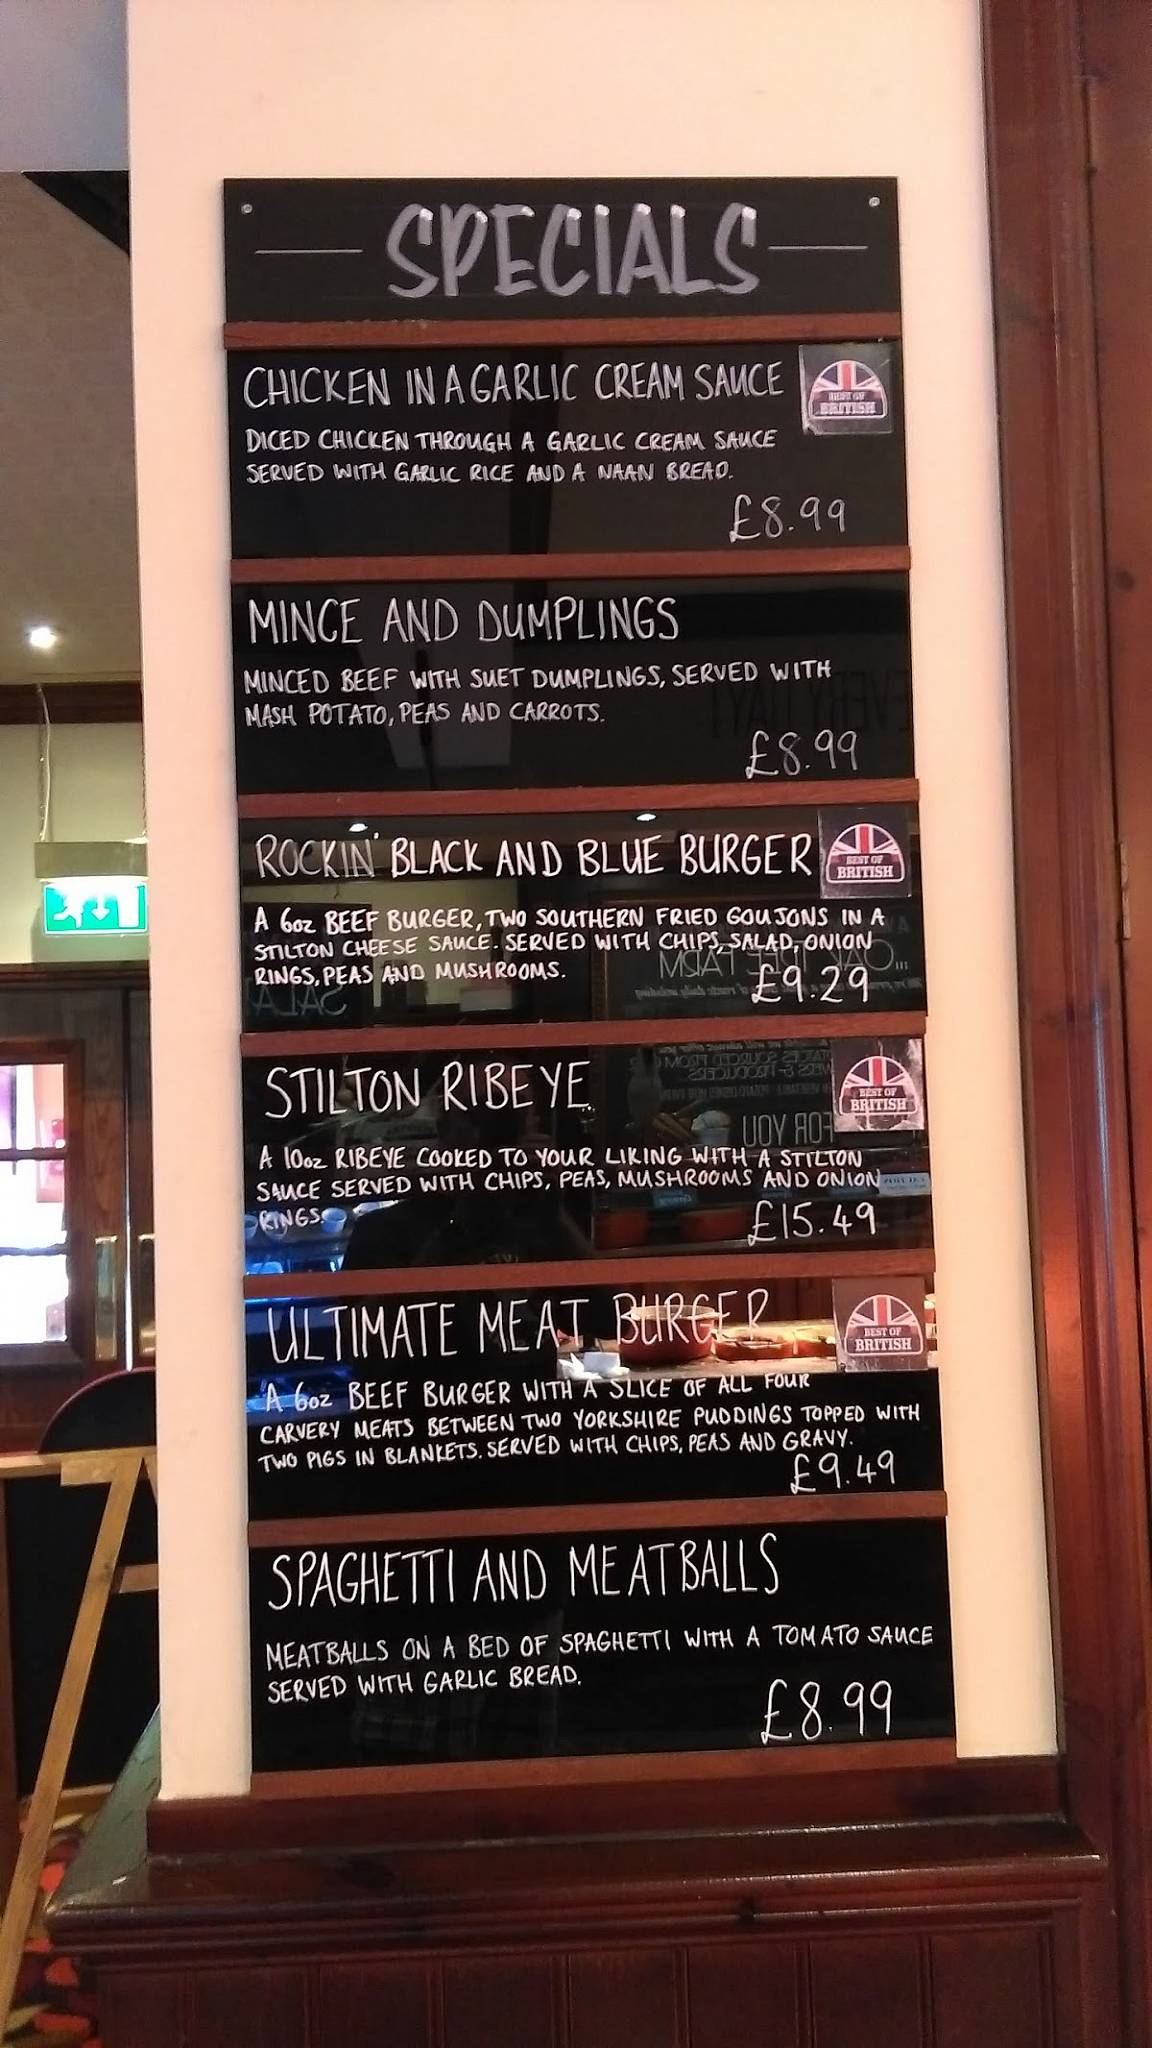 SPECIALS
CHICKEN IN A GARLIC CREAM SAUCE
BEST OF
BRITISH
DICED CHICKEN THROUGH A GARLIC CREAM SAUCE
SERVED WITH GARLIC RICE AND A NAAN BREAD.
£8.99
MINCE AND DUMPLINGS
MINCED BEEF WITH SUET DUMPLINGS, SERVED WITH
MASH POTATO, PEAS AND CARROTS.
£8.99
ROCKIN' BLACK AND BLUE BURGER
BEST OF
BRITISH
A 6oz BEEF BURGER, TWO SOUTHERN FRIED GOUJONS IN A
STILTON CHEESE SAUCE. SERVED WITH CHIPS, SALAD, ONION
RINGS, PEAS AND MUSHROOMS.
£9.29
STILTON RIBEYE
BEST OF
BRITISH
A 10oz RIBEYE COOKED TO YOUR LIKING WITH A STILTON
SAUCE SERVED WITH CHIPS, PEAS, MUSHROOMS AND ONION
RINGS.
£15.49
ULTIMATE MEAT BURGER
BEST OF
BRITISH
A 6oz BEEF BURGER WITH A SLICE OF ALL FOUR
CARVERY MEATS BETWEEN TWO YORKSHIRE PUDDINGS TOPPED WITH
TWO PIGS IN BLANKETS. SERVED WITH CHIPS, PEAS AND GRAVY.
£9.49
SPAGHETTI AND MEATBALLS
MEATBALLS ON A BED OF SPAGHETTI WITH A TOMATO SAUCE
SERVED WITH GARLIC BREAD.
£8.99